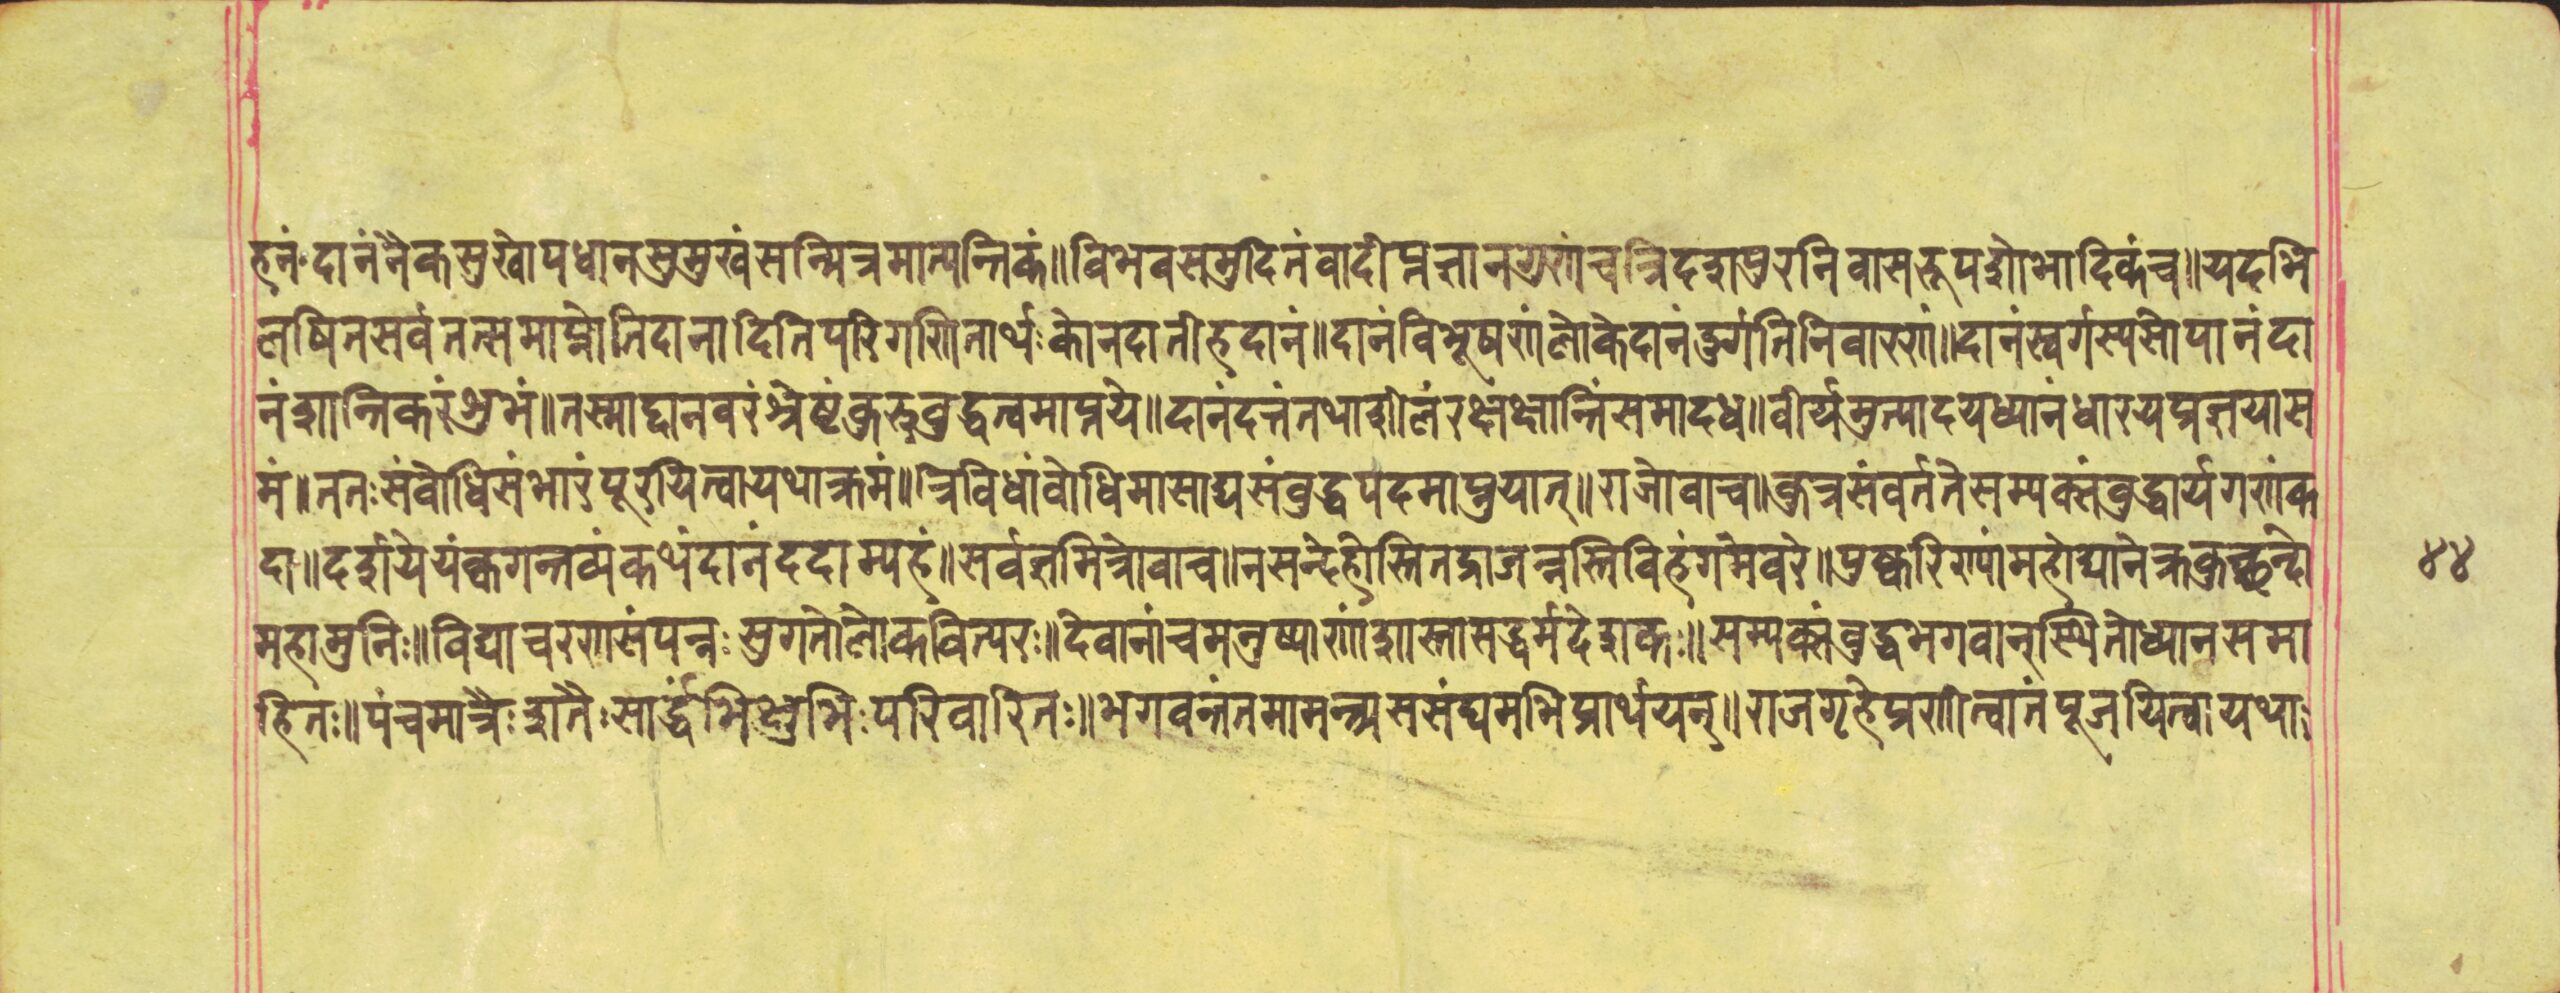 हनं॰दानंनैकसुखोपधानसुमुखंसन्मित्रमात्यन्तिकं॥विभवसमुदितंवादीप्तज्ञानगुणांचत्रिदशपुरनिवासरूपशोभादिकंच॥यदभि
लषितसर्वतत्समाप्नोतिदानादितिपरिगणितार्थःकोनदातीहदानं॥दानंविभूषणंलोकेदानंदुर्गतिनिवारणं॥दानंस्वर्गस्यसोपानंदा
नंशान्तिकरंशुभं॥तस्माद्दानवरंश्रेष्ठंकुरुबुद्धत्वमाप्नये॥दानंदत्तंतथाशीलंरक्षंक्षान्तिंसमादध॥वीर्यमुत्पादयध्यानंधारयप्रज्ञयास
मं॥ततःसंवोधिसंभारंपूरयित्वायथाक्रमं॥त्रिविधांवोधिमासाद्यसंवुद्धपदमाप्नुयात्॥राजोवाच॥कुत्रसंवर्ततेसम्यक्संवुद्धार्यगणंक
दा॥दर्शयेयंक्वगन्तव्यंकथंदानंददाम्यहं॥सर्वज्ञमित्रोवाच॥नसन्देहोस्तितद्राजन्नस्तिविहंगमेवरे॥पुष्करिण्यांमहोद्यानेक्रकुच्छन्दो
महामुनिः॥विद्याचरणसंपन्नःसुगतोलोकवित्परः॥देवानांचमनुष्याणांशास्तासद्धर्मदेशकः॥सम्यक्संवुद्धभगवान्स्थितोध्यानसमा
हितः॥पंचमात्रैःशतैःसार्द्धंभिक्षुभिःपरिवारितः॥भगवन्तंतमामन्त्र्यससंघमभिप्रार्थयन्॥राजगृहेप्रणीत्वातंपूजयित्वायथाः
४४